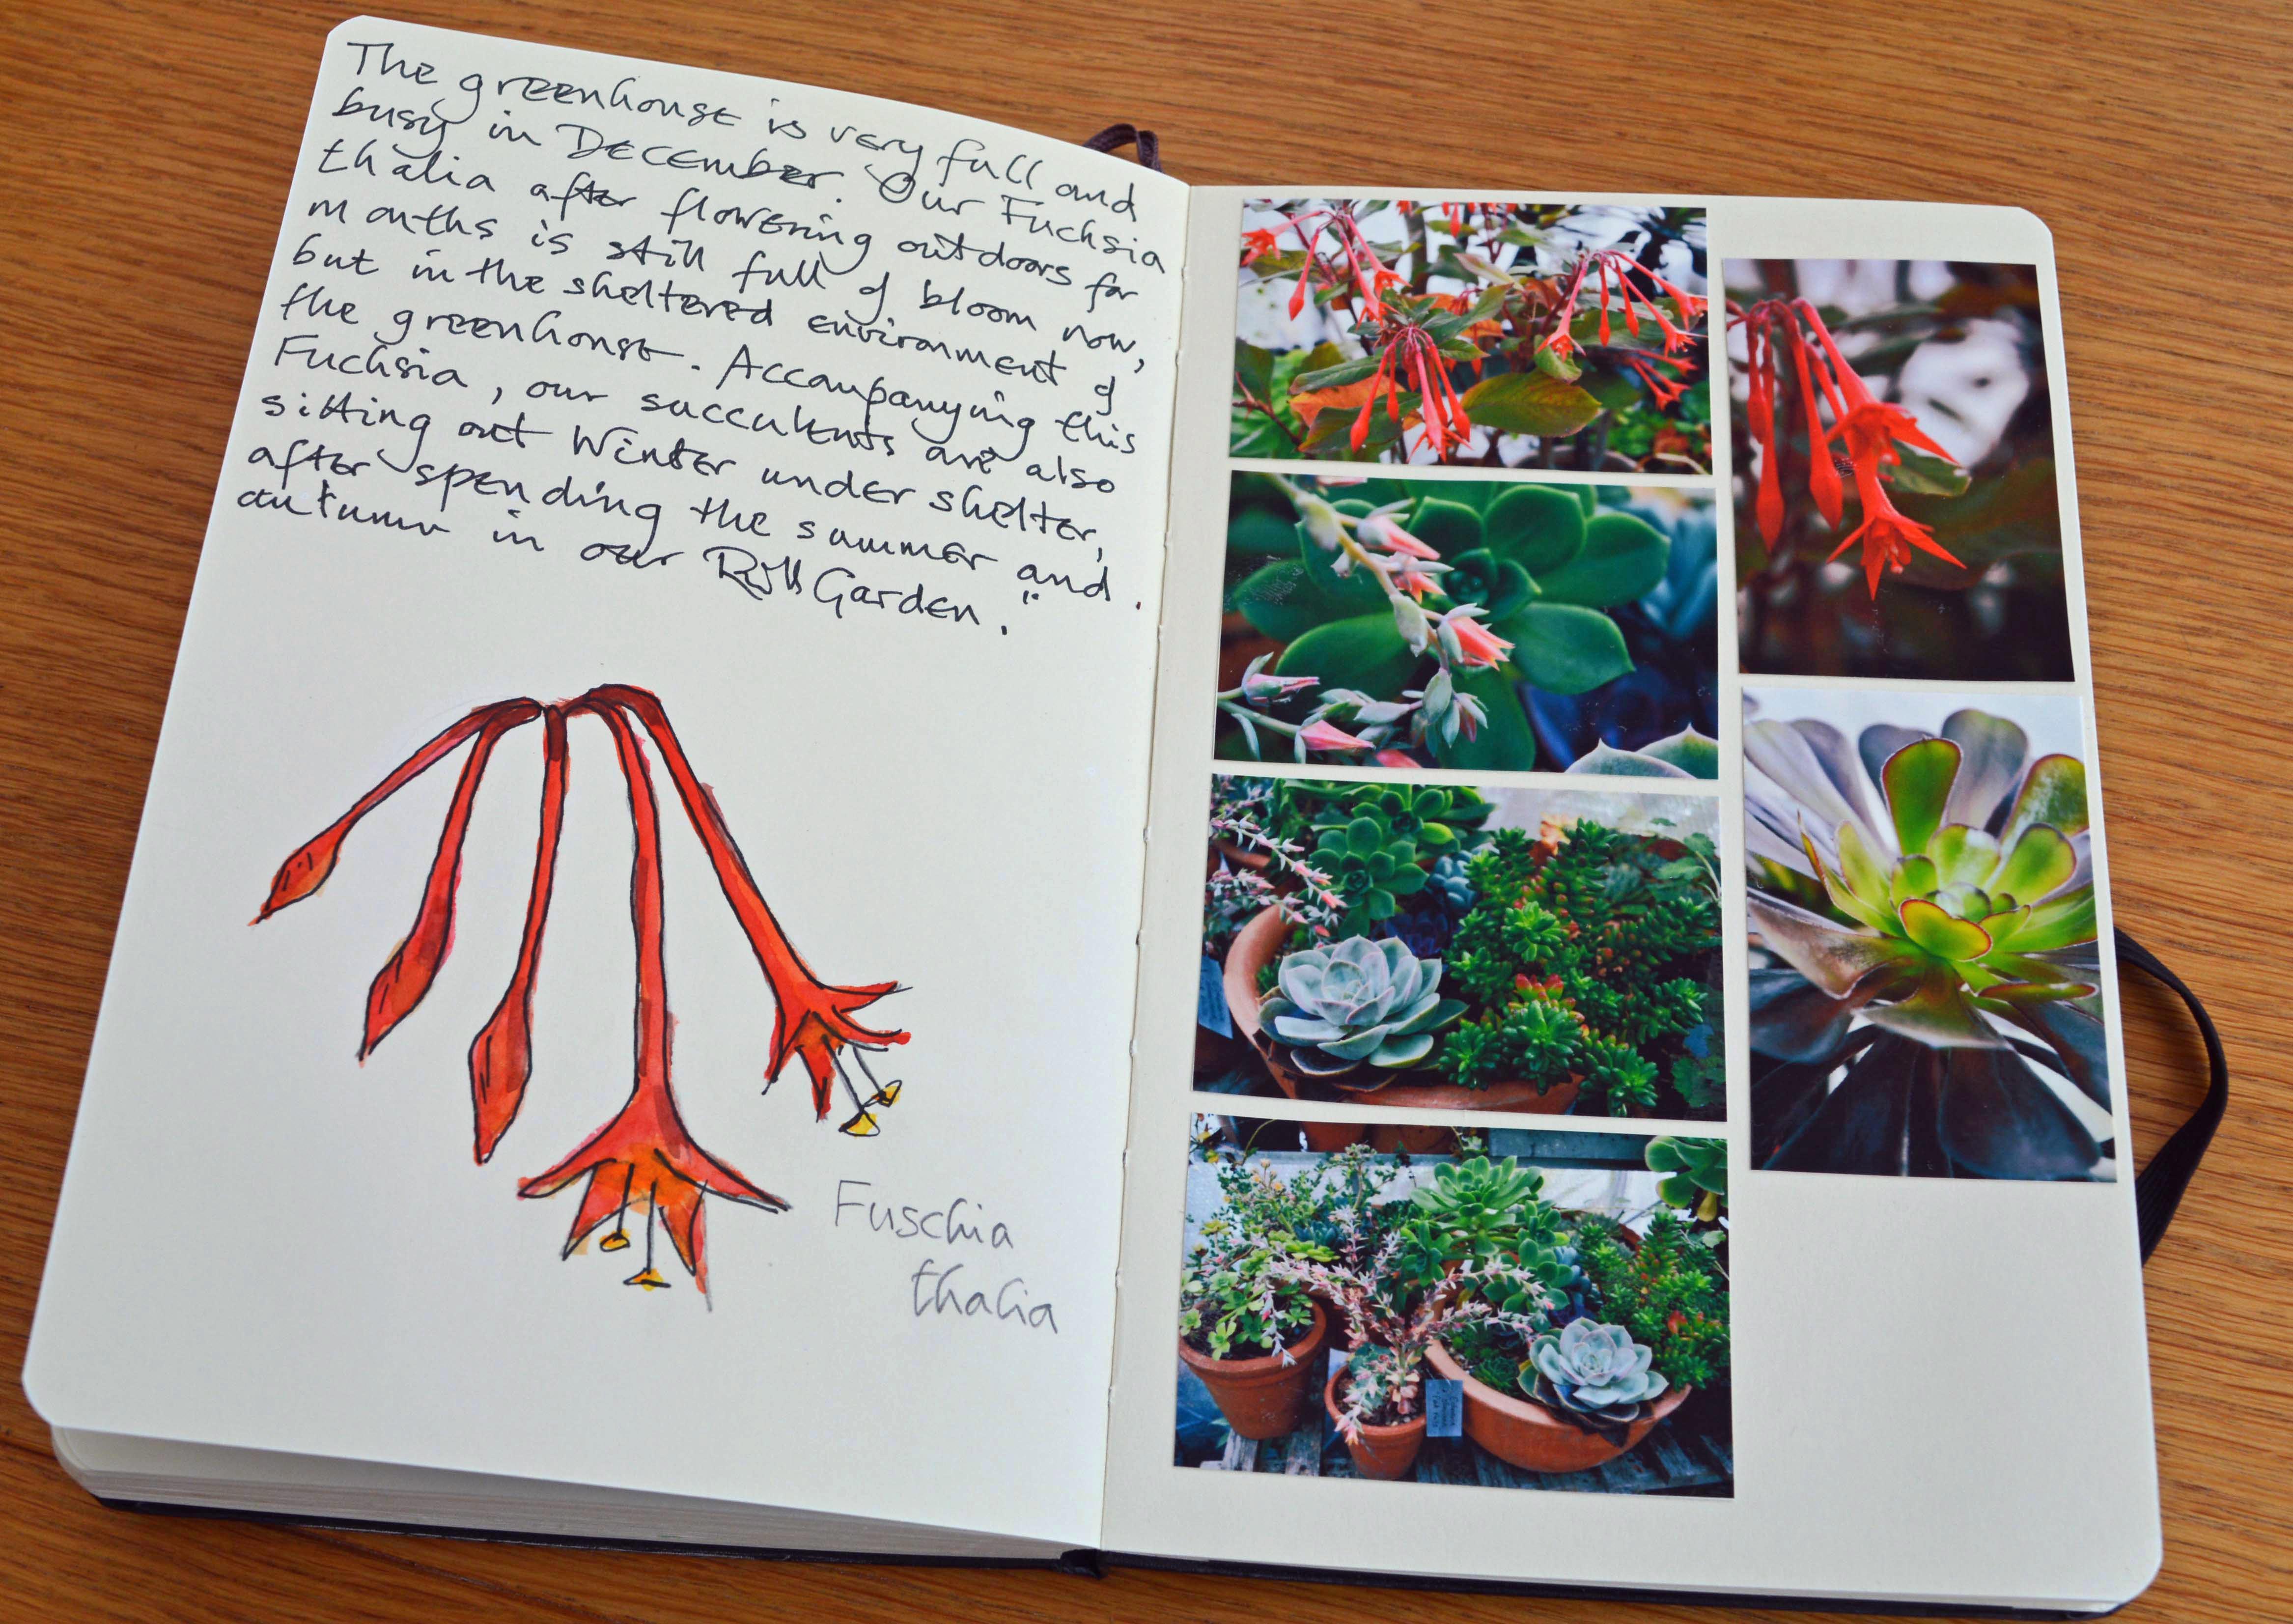 The greenhouse is very full and
busy in December. Our Fuchsia
thalia after flowering outdoors for
months is still full of bloom now,
but in the sheltered environment of
the greenhouse. Accompanying this
Fuchsia, our succulents are also
sitting out Winter under shelter,
after spending the summer and
autumn in our Garden."
Fuschia
thalia